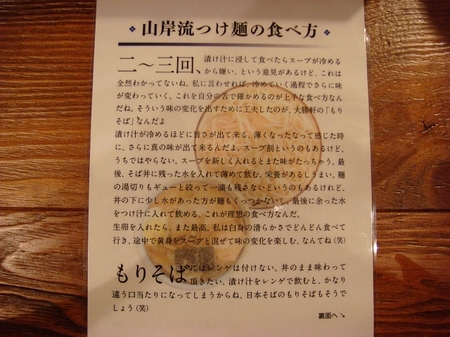 山岸流つけ麺の食べ方
二〜三回、漬け汁に浸して食べたらスープが冷める
から嫌い、という意見があるけど、これは
全然わかってないね。私に言わせれば、冷めていく過程でさらに味
が変わっていく。これを自分の舌で確かめるのが上手な食べ方なん
だね。そういう味の変化を出すために工夫したのが、大勝軒の「もり
そば」なんだよ
漬け汁が冷めるほどに旨さが出て来る。薄くなったなって感じた時
に、さらに真の味が出て来るんだよ。スープ割というのもあるけど、
うちではやらない。スープを新しく入れるとまた味がたっちゃう。最
後、そば丼に残った水を入れて薄めて飲む。栄養があるしうまい。麺
の湯切りもギューと絞って一滴も残さないというのもあるけれど、
丼の下に少し水があった方が麺もくっつかないし、最後に余った水
をつけ汁に入れて飲める。これが理想の食べ方なんだ。
生卵を入れたら、また最高。私は白身の滑らかさでどんどん食べて
行き、途中で黄身をスープと混ぜて味の変化を楽しむ、なんてね(笑)
もりそばにはレンゲは付けない。丼のまま味わって
頂きたい。漬け汁をレンゲで飲むと、かなり
違う口当たりになってしまうからね。日本そばのもりそばもそうで
しょう(笑)
裏面へ↘